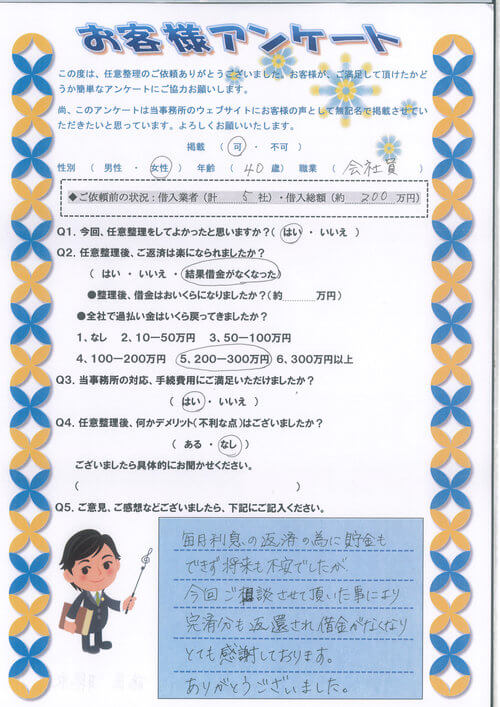 お客様アンケート
この度は、任意整理のご依頼ありがとうございました。お客様が、ご満足して頂けたかど
うか簡単なアンケートにご協力お願いします。
尚、このアンケートは当事務所のウェブサイトにお客様の声として無記名で掲載させてい
ただきたいと思っています。よろしくお願いいたします。
掲載 （ 可 ・ 不可 ）
性別 （ 男性 ・ 女性 ） 年齢 （ 40 歳） 職業 （ 会社員 ）
◆ご依頼前の状況：借入業者（計 5 社）・借入総額（約 200 万円）
Q1. 今回、任意整理をしてよかったと思いますか？（ はい ・ いいえ ）
Q2. 任意整理後、ご返済は楽になられましたか？
（ はい ・ いいえ ・ 結果借金がなくなった）
●整理後、借金はおいくらになりましたか？（約........万円）
●全社で過払い金はいくら戻ってきましたか？
1、なし 2、10－50万円 3、50－100万円
4、100－200万円 5、200－300万円 6、300万円以上
Q3. 当事務所の対応、手続費用にご満足いただけましたか？
（ はい ・ いいえ ）
Q4. 任意整理後、何かデメリット（不利な点）はございましたか？
（ ある ・ なし ）
ございましたら具体的にお聞かせください。
（ ）
Q5. ご意見、ご感想などございましたら、下記にご記入ください。
毎月利息の返済の為に貯金も
できず将来も不安でしたが
今回ご相談させて頂いた事により
完済分も返還され借金がなくなり
とても感謝しております。
ありがとうございました。